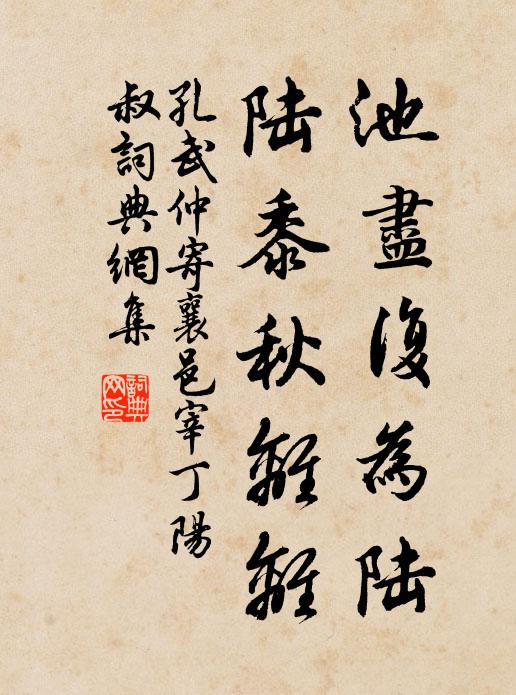 池盡復為陸
陸黍秋離離
孔武仲寄襄邑宰丁陽
叔詞典網集
詞典
网印